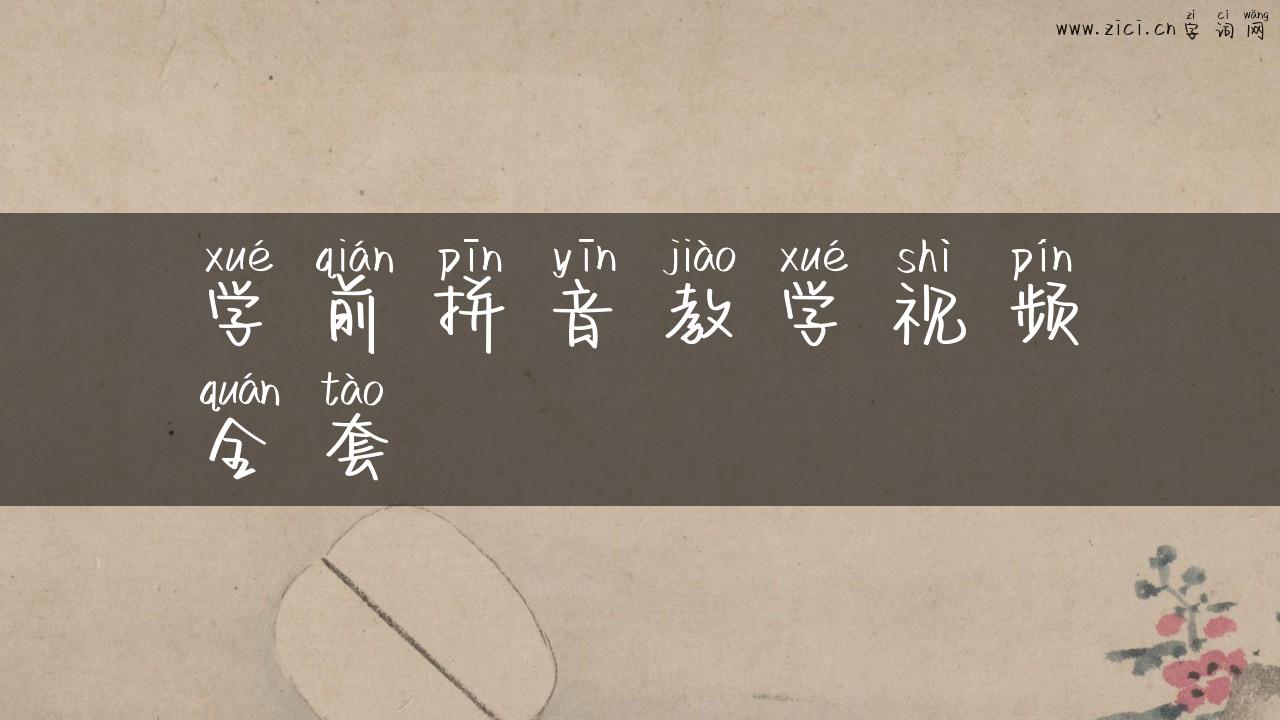 zì cí wǎng
www.zici.cn 字 词 网
xué qián pīn yīn jiào xué shì pín
学 前 拼 音 教 学 视 频
quán tào
全 套